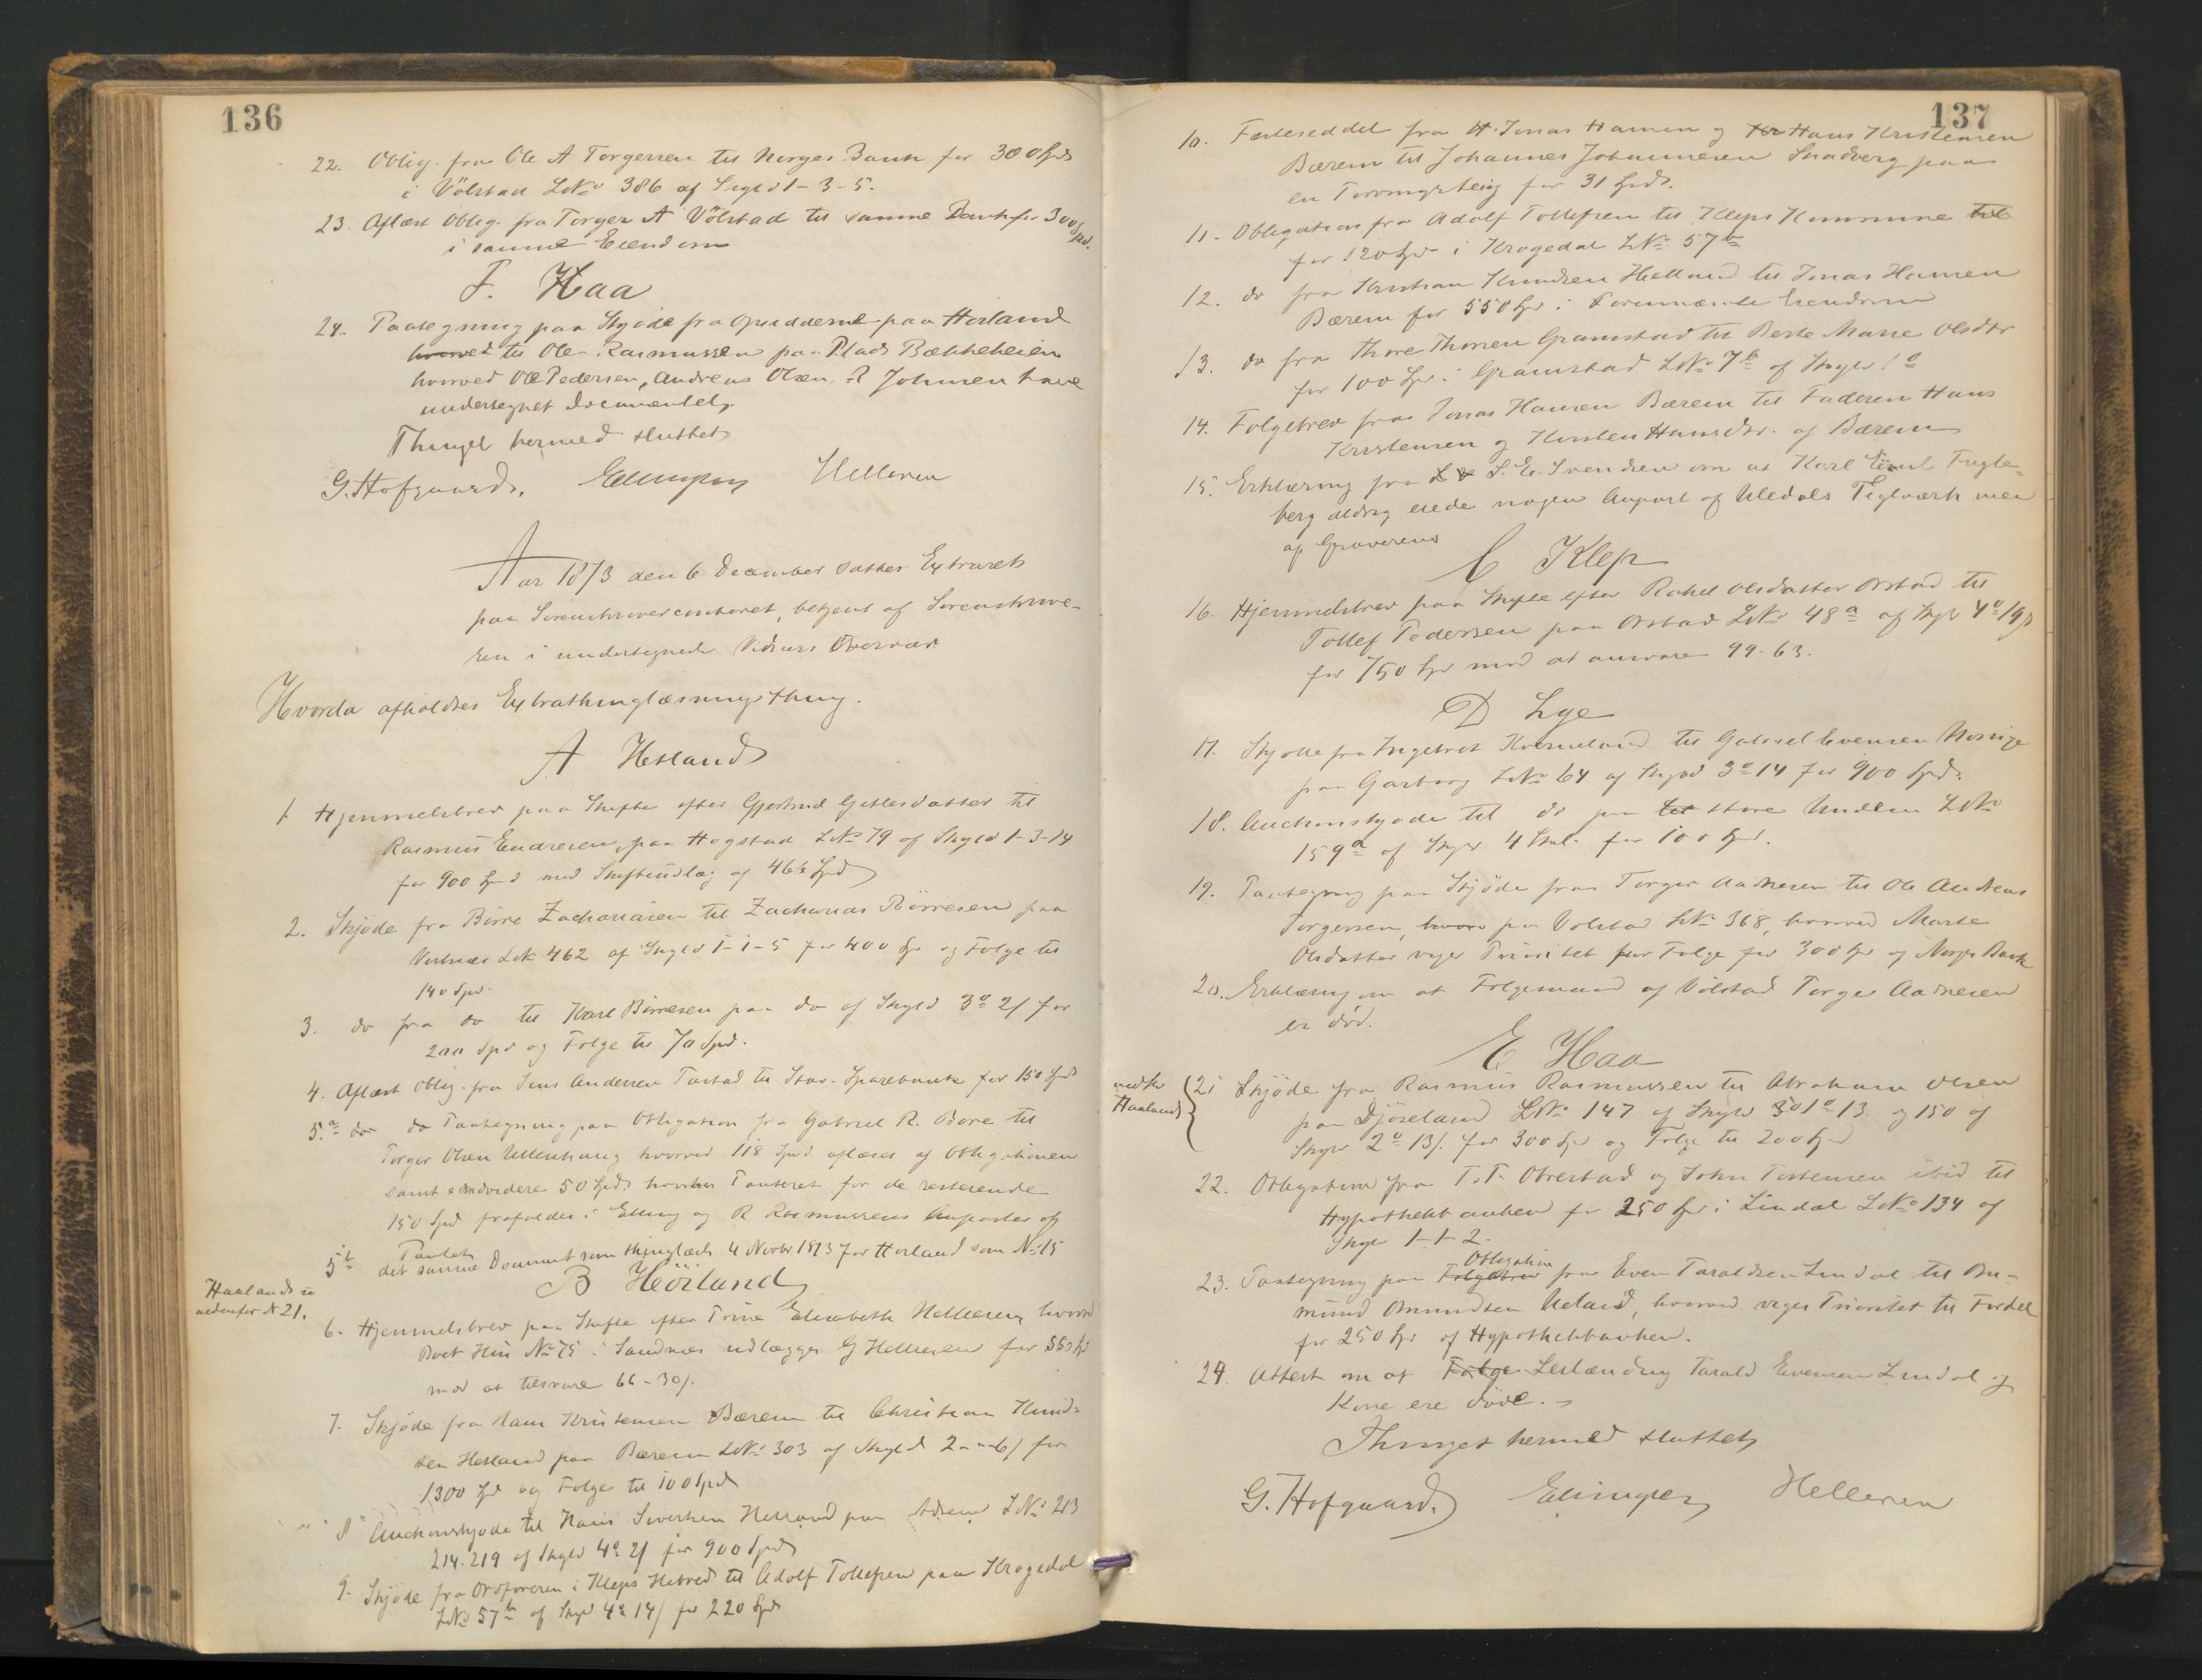 136
22. Oblig. fra Ole A Torgersen til Norges Bank for 300 Spd
i Völstad LNo 386 af Skyld 1-3-5.
23. Aflæst Oblig. fra Torger A Völstad til samme Bank for 300 Spd.
i samme Eiendom
F. Haa
24. Paategning paa Skjöde fra Opsidderne paa Hörland
hvorved til Ole Rasmussen paa Plads Bækkeheien
hvorved Ole Pedersen, Andreas Olsen, R Johnsen have
undertegnet Documentet,
Thinget hermed sluttet
G. Hofgaard. Edingsen Helleren
Aar 1873 den 6 December sattes Extraret
paa Sorenskrivercontoret, betjent af Sorenskrive-
ren i undertegnede Vidners Overvær
Hvorda afholdtes Extrathinglæsningsthing.
A Hetland
1. Hjemmelsbrev paa Skifte efter Gjertrud Gitlesdatter til
Rasmus Endresen, paa Hogstad LNo 79 af Skyld 1-3-14
for 900 Spd med Skifteudlæg af 466 Spd
2. Skjöde fra Börre Zachariasen til Zacharias Börresen paa
LNo 462 af Skyld 1-1-5 for 400 Spd og Folge til
140 Spd.
3. do fra do til Karl Börresen paa do af Skyld 3o 2/ for
200 Spd og Folge til 70 Spd.
4. Aflæst Oblig. fra Jens Andersen Tastad til Stav. Sparebank for 150 Spd
5.a do do Paategning paa Obligation fra Gabriel R. Bore til
Torger Olsen Ullenhaug hvorved 118 Spd aflæses af Obligationen
samt endvidere 50 Spd. hvorhos Panteret for de resterende
150 Spd frafaldes i Elling og R Rasmussens Anparter af
Pantet
5b det samme Document som thinglæst 4 Novbr 1873 for Hörland som No 15
B Höiland
Haalands re
nedenfor N 21.
6. Hjemmelsbrev paa Skifte efter Trine Elisabeth Helleren, hvorved
Boet Hus No 75 i Sandnæs udlægges G Helleren for 550 Spd
mod at tilsvare 66-30/.
7. Skjöde fra Hans Kristensen Bærem til Christian Knud-
sen Hetland paa Bærem LNo 303 af Skyld 2-"-6/ for
1300 Spd og Folge til 100 Spd
8 Auctionsskjöde til Hans Sivertsen Hetland paa LNo 213
214.219 af Skyld 4o 2/ for 900 Spd
9. Skjöde fra Ordföreren i Kleps Herred til Adolf Tollefsen paa Krogedal
LNo 57b af Skyld 4o 14/ for 220 Spd
137
10. Fæsteseddel fra H. Jonas Hansen og Kr Hans Kristensen
Bærem til Johannes Johannesen Snadberg paa
en Torvmyrteig for 31 Spd.
11. Obligation fra Adolf Tollefsen til Kleps Kommune til
for 120 Spd i Krogedal LNo 57b
12. do fra Kristian Knudsen Hetland til Jonas Hansen
Bærem for 550 Spd i Fornævnte Eiendom
13. do fra Thore Thorsen Gramstad til Berte Marie Olsdtr
for 100 Spd i Gramstad LNo 7b af Skyld 1o
14. Folgebrev fra Jonas Hansen Bærem til Faderen Hans
Kristensen og Kirsten Hansdtr. af Bærem
15. Erklæring fra S. E. Svendsen om at Karl Emil Fugle-
berg aldrig eiede nogen Anpart af Uledals Teglværk men
af Graveren
C Klep
16. Hjemmelsbrev paa Skifte efter Rakel Olsdatter Orstad til
Tollef Pedersen paa Orstad LNo 48a af Skyld 4o 19/
for 750 Spd mod at ansvare 99-63.
D Lye
17. Skjöde fra Ingebret Kverneland til Gabriel Evensen Norrige
paa Garborg LNo 64 af Skyld 3o 14 for 900 Spd.
18. Auctionsskjöde til do paa lit store Undem LNo
159a af Skyld 4 Skl. for 100 Spd.
19. Paategning paa Skjöde fra Torger Aadnesen til Ole Andreas
Torgersen, hvorv paa Volstad LNo 368, hvorved Marte
Olsdatter viger Prioritet for Folge for 300 Spd af Norges Bank
20. Erklæring om at Folgemand af Völstad Torger Aadnesen
er död.
E Haa
Haaland
21 Skjöde fra Rasmus Rasmussen til Abraham Olsen
paa Djöseland LNo 147 af Skyld 1o 13 og 150 af
Skyld 2o 13/. for 300 Spd og Folge til 200 Spd
22. Obligation fra T. T. Obrestad og John Torstensen ibid til
Hypothekbanken for 250 Spd i Lindal LNo 134 af
Skyld 1-1-2.
Obligation
23. Paategning paa Folgebrev fra Even Taraldsen Lindal til Om-
mund Omundsen Ueland, hvorved viges Prioritet til Fordel
for 250 Spd af Hypothekbanken.
24. Attest om at Folge Lestænding Tarald Evensen Lindal og
Kone ere döde.
Thinget hermed sluttet
G. Hofgaard. Edingsen Helleren